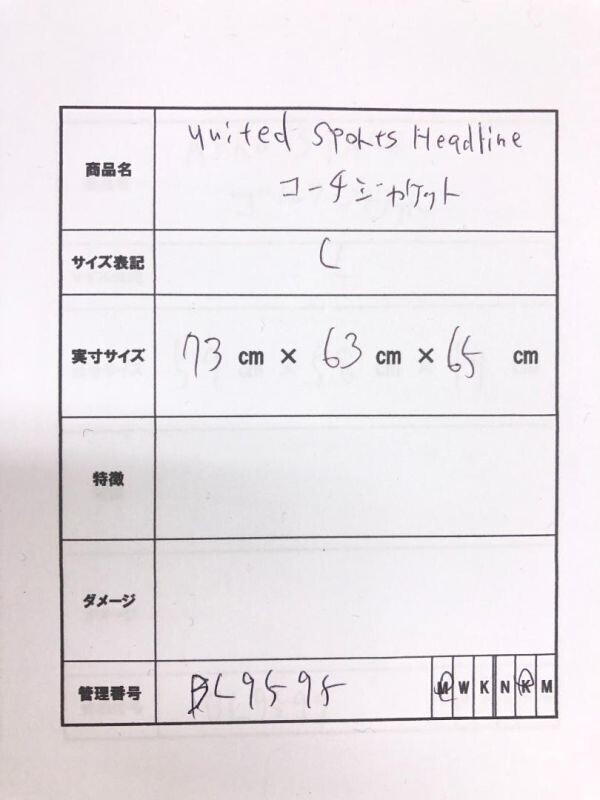 商品名
united Sports Headline
コーチジャケット
サイズ表記
L
実寸サイズ
73 cm × 63 cm × 65 cm
特徴
ダメージ
管理番号
BL9595
M W K N K M